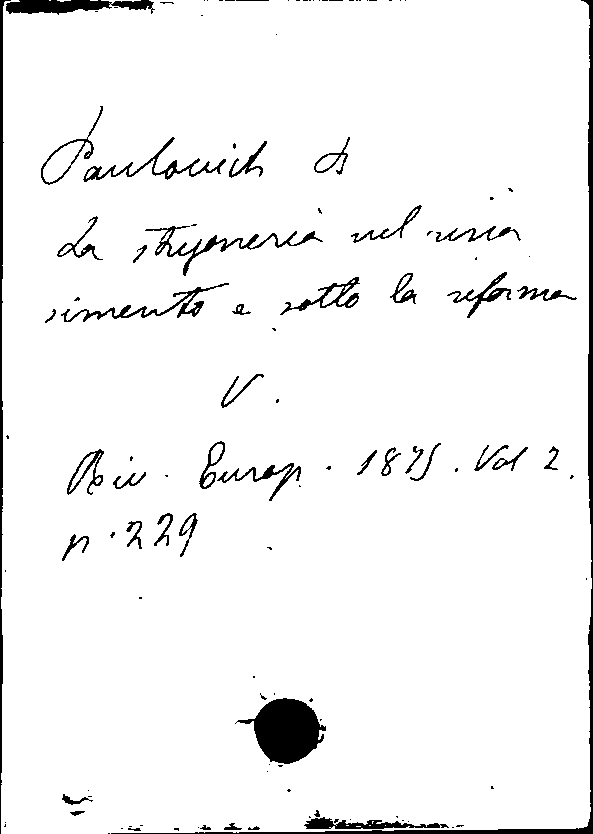 Paulovich A
La stregoneria nel rina
simento e sotto la riforma
V.
Riv. Europ. 1875. Vol 2.
p. 229